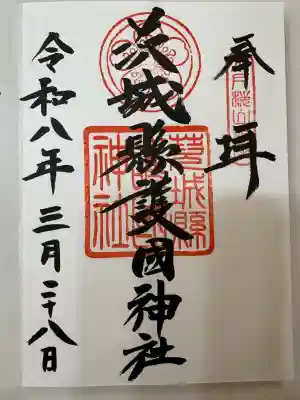 奉拝
茨城縣護國神社
令和八年三月二十八日
茨城縣
神社